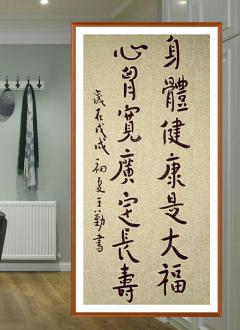 身體健康是大福
心胃寬廣定長壽
歲在戊戌初夏王勤書